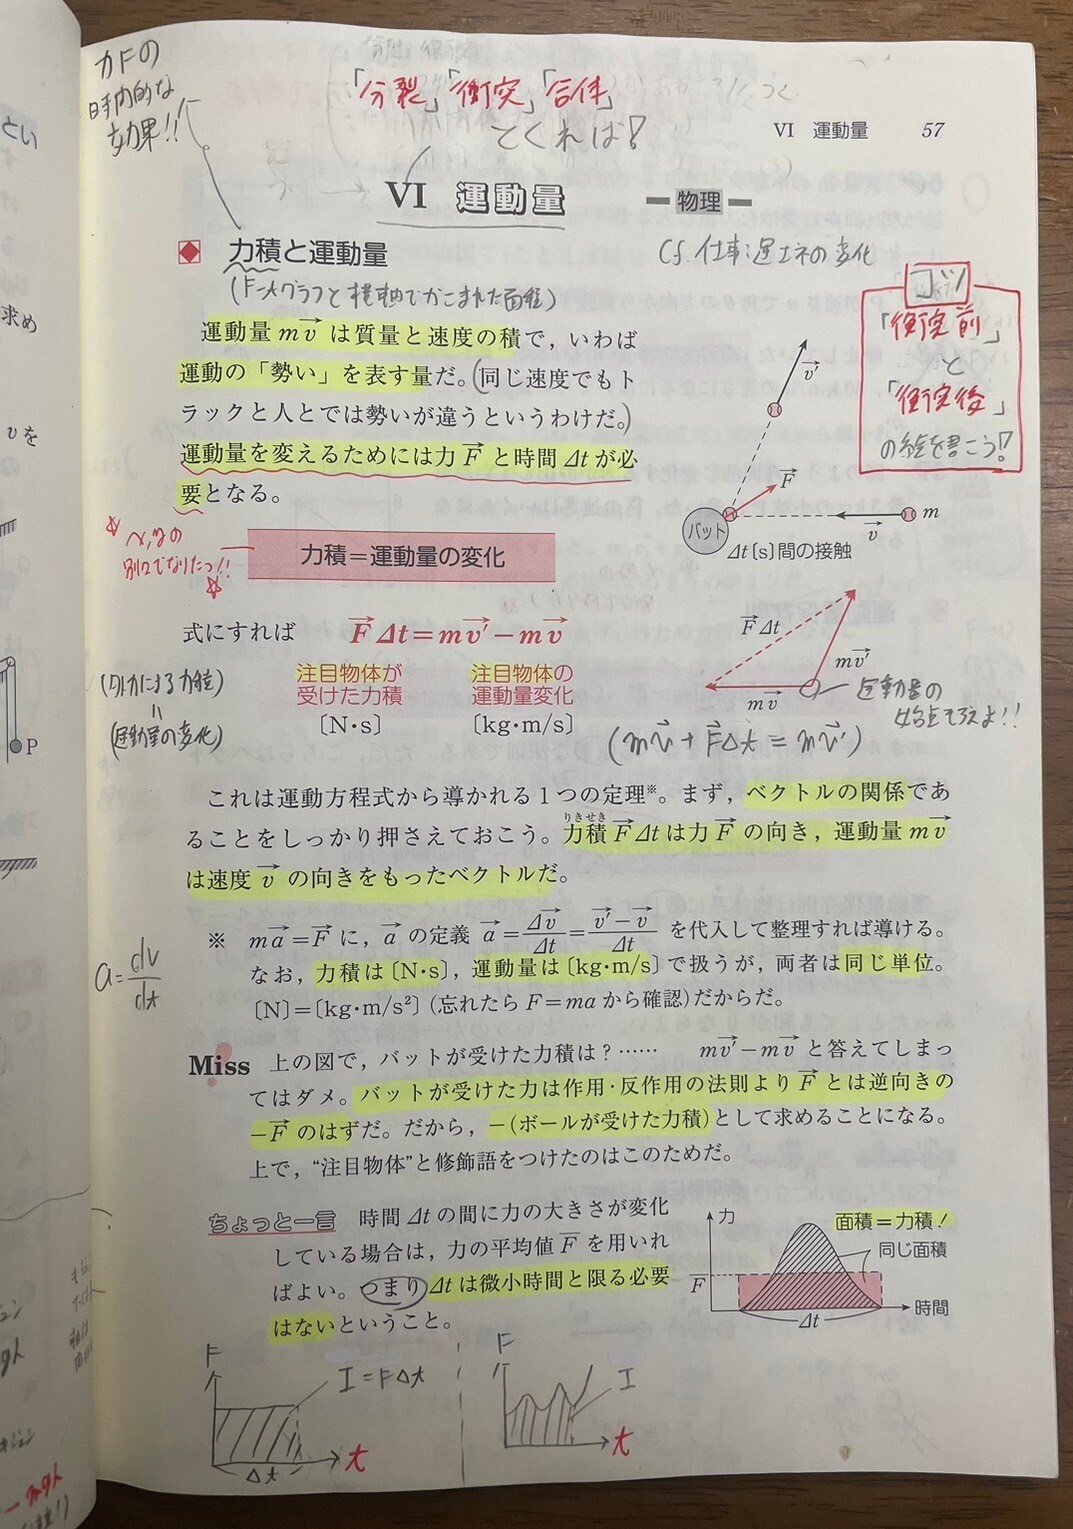 力Fの
時間的な
効果!!
「分裂」「衝突」「合体」
てくれば!
VI 運動量 57
VI 運動量
物理
力積と運動量
(F-tグラフと横軸でかこまれた面積)
cf. 仕事:運エネの変化
コツ!
「衝突前」
と
「衝突後」
の絵を書こう!
運動量 mv⃗ は質量と速度の積で，いわば
運動の「勢い」を表す量だ。(同じ速度でもト
ラックと人とでは勢いが違うというわけだ。)
運動量を変えるためには力 F⃗ と時間 Δt が必
要となる。
v⃗'
F⃗
バット
v⃗
m
Δt〔s〕間の接触
x,yの
別々でなりたつ!!
力積＝運動量の変化
式にすれば F⃗Δt＝mv⃗'－mv⃗
注目物体が 注目物体の
受けた力積 運動量変化
〔N・s〕 〔kg・m/s〕
(外力による力積)
=
(運動量の変化)
F⃗Δt
mv⃗'
mv⃗
運動量の
始点そろえよ!!
(mv⃗ + F⃗Δt = mv⃗')
これは運動方程式から導かれる1つの定理※。まず，ベクトルの関係であ
ることをしっかり押さえておこう。力積 F⃗Δt は力 F⃗ の向き，運動量 mv⃗
りきせき
は速度 v⃗ の向きをもったベクトルだ。
※ ma⃗＝F⃗ に，a⃗ の定義 a⃗＝Δv⃗/Δt＝(v⃗'－v⃗)/Δt を代入して整理すれば導ける。
なお，力積は〔N・s〕，運動量は〔kg・m/s〕で扱うが，両者は同じ単位。
〔N〕＝〔kg・m/s²〕(忘れたら F＝ma から確認)だからだ。
a=dv/dt
Miss 上の図で，バットが受けた力積は？…… mv⃗'－mv⃗ と答えてしまっ
てはダメ。バットが受けた力は作用・反作用の法則より F⃗ とは逆向きの
－F⃗ のはずだ。だから，－(ボールが受けた力積)として求めることになる。
上で，“注目物体”と修飾語をつけたのはこのためだ。
ちょっと一言 時間 Δt の間に力の大きさが変化
している場合は，力の平均値 F̄ を用いれ
ばよい。つまり Δt は微小時間と限る必要
はないということ。
力
面積＝力積！
同じ面積
F̄
時間
Δt
F
I=FΔt
Δt
t
F
I
t
とい
求め
v を
P